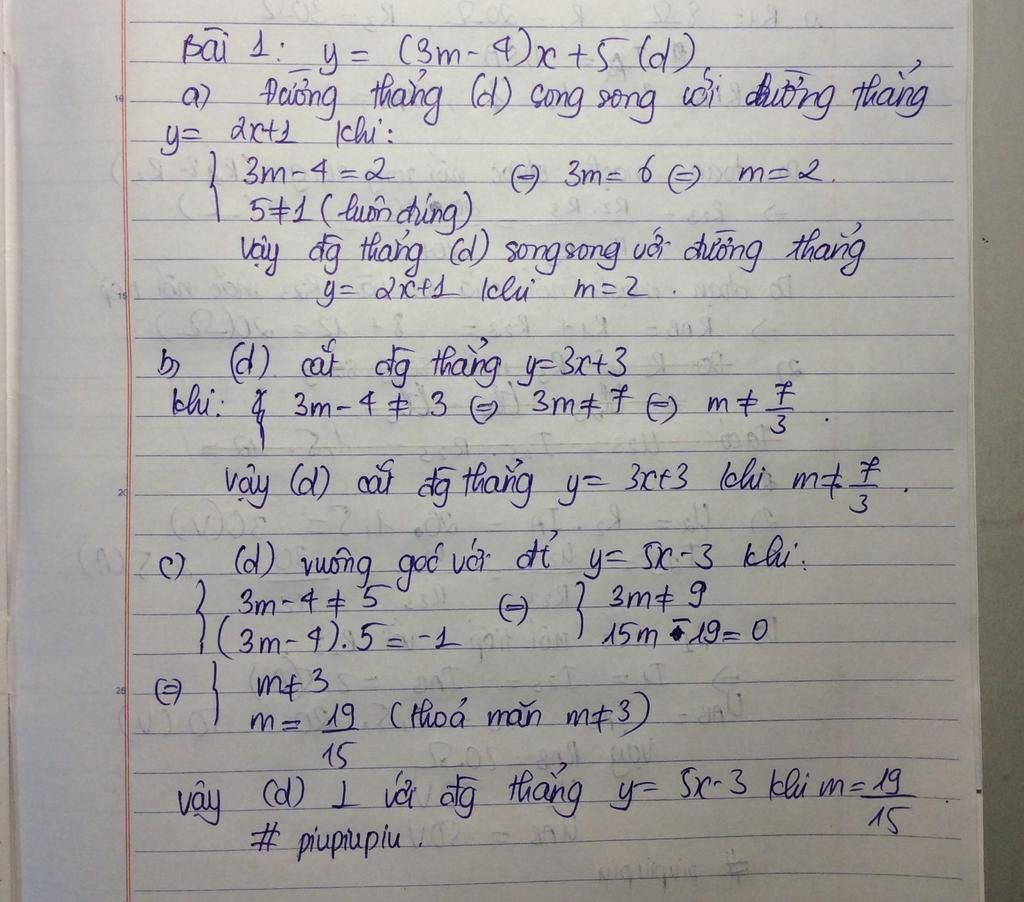 Bài 1: y = (3m-4)x+5 (d)
a) Đường thẳng (d) song song với đường thẳng
y= 2x+1 khi:
{ 3m-4=2 (=) 3m=6 (=) m=2.
5≠1 (luôn đúng)
Vậy đg thẳng (d) song song với đường thẳng
y= 2x+1 khi m=2.
b) (d) cắt đg thẳng y=3x+3
khi: 3m-4≠3 (=) 3m≠7 (=) m≠7/3.
Vậy (d) cắt đg thẳng y= 3x+3 khi m≠7/3.
c) (d) vuông góc với đt y= 5x-3 khi:
{ 3m-4≠5 (=) { 3m≠9
(3m-4).5=-1 15m-19=0
(=) { m≠3
m=19/15 (thoả mãn m≠3)
Vậy (d) ⊥ với đg thẳng y= 5x-3 khi m=19/15
# piupiupiu.